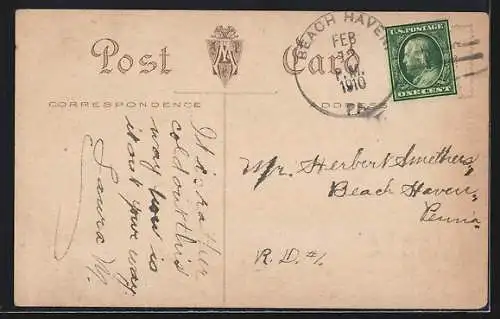 Post Card
CORRESPONDENCE
ADDRESS
BEACH HAVEN,
FEB
12
P.M.
1910
PA.
U.S. POSTAGE
ONE CENT
It is rather
cold out this
way how is
it out your way.
Laura M.
Mr. Herbert Smethers,
Beach Haven,
Penna
R.D. #1.